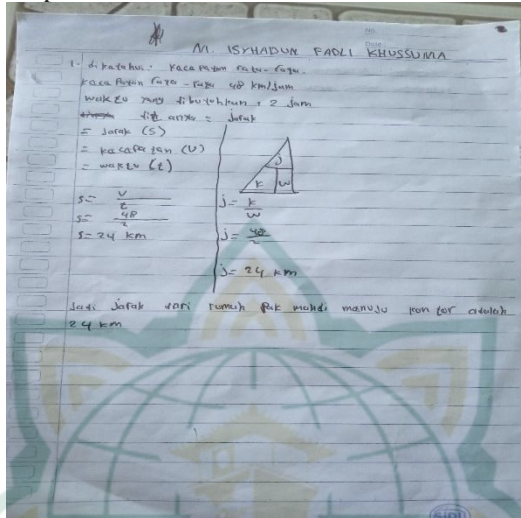 No.
Date
M. ISYHADUN FADLI KHUSSUMA
1. diketahui: Kecepatan rata-rata.
Kecepatan rata-rata 48 km/jam
waktu yang dibutuhkan : 2 jam
dit anya = jarak
= Jarak (s)
= kecepatan (v)
= waktu (t)
s = v/t
s = 48/2
s = 24 km
J
K W
j = K/W
j = 48/2
j = 24 km
Jadi jarak dari rumah Pak mahdi manuju kantor adalah
24 km